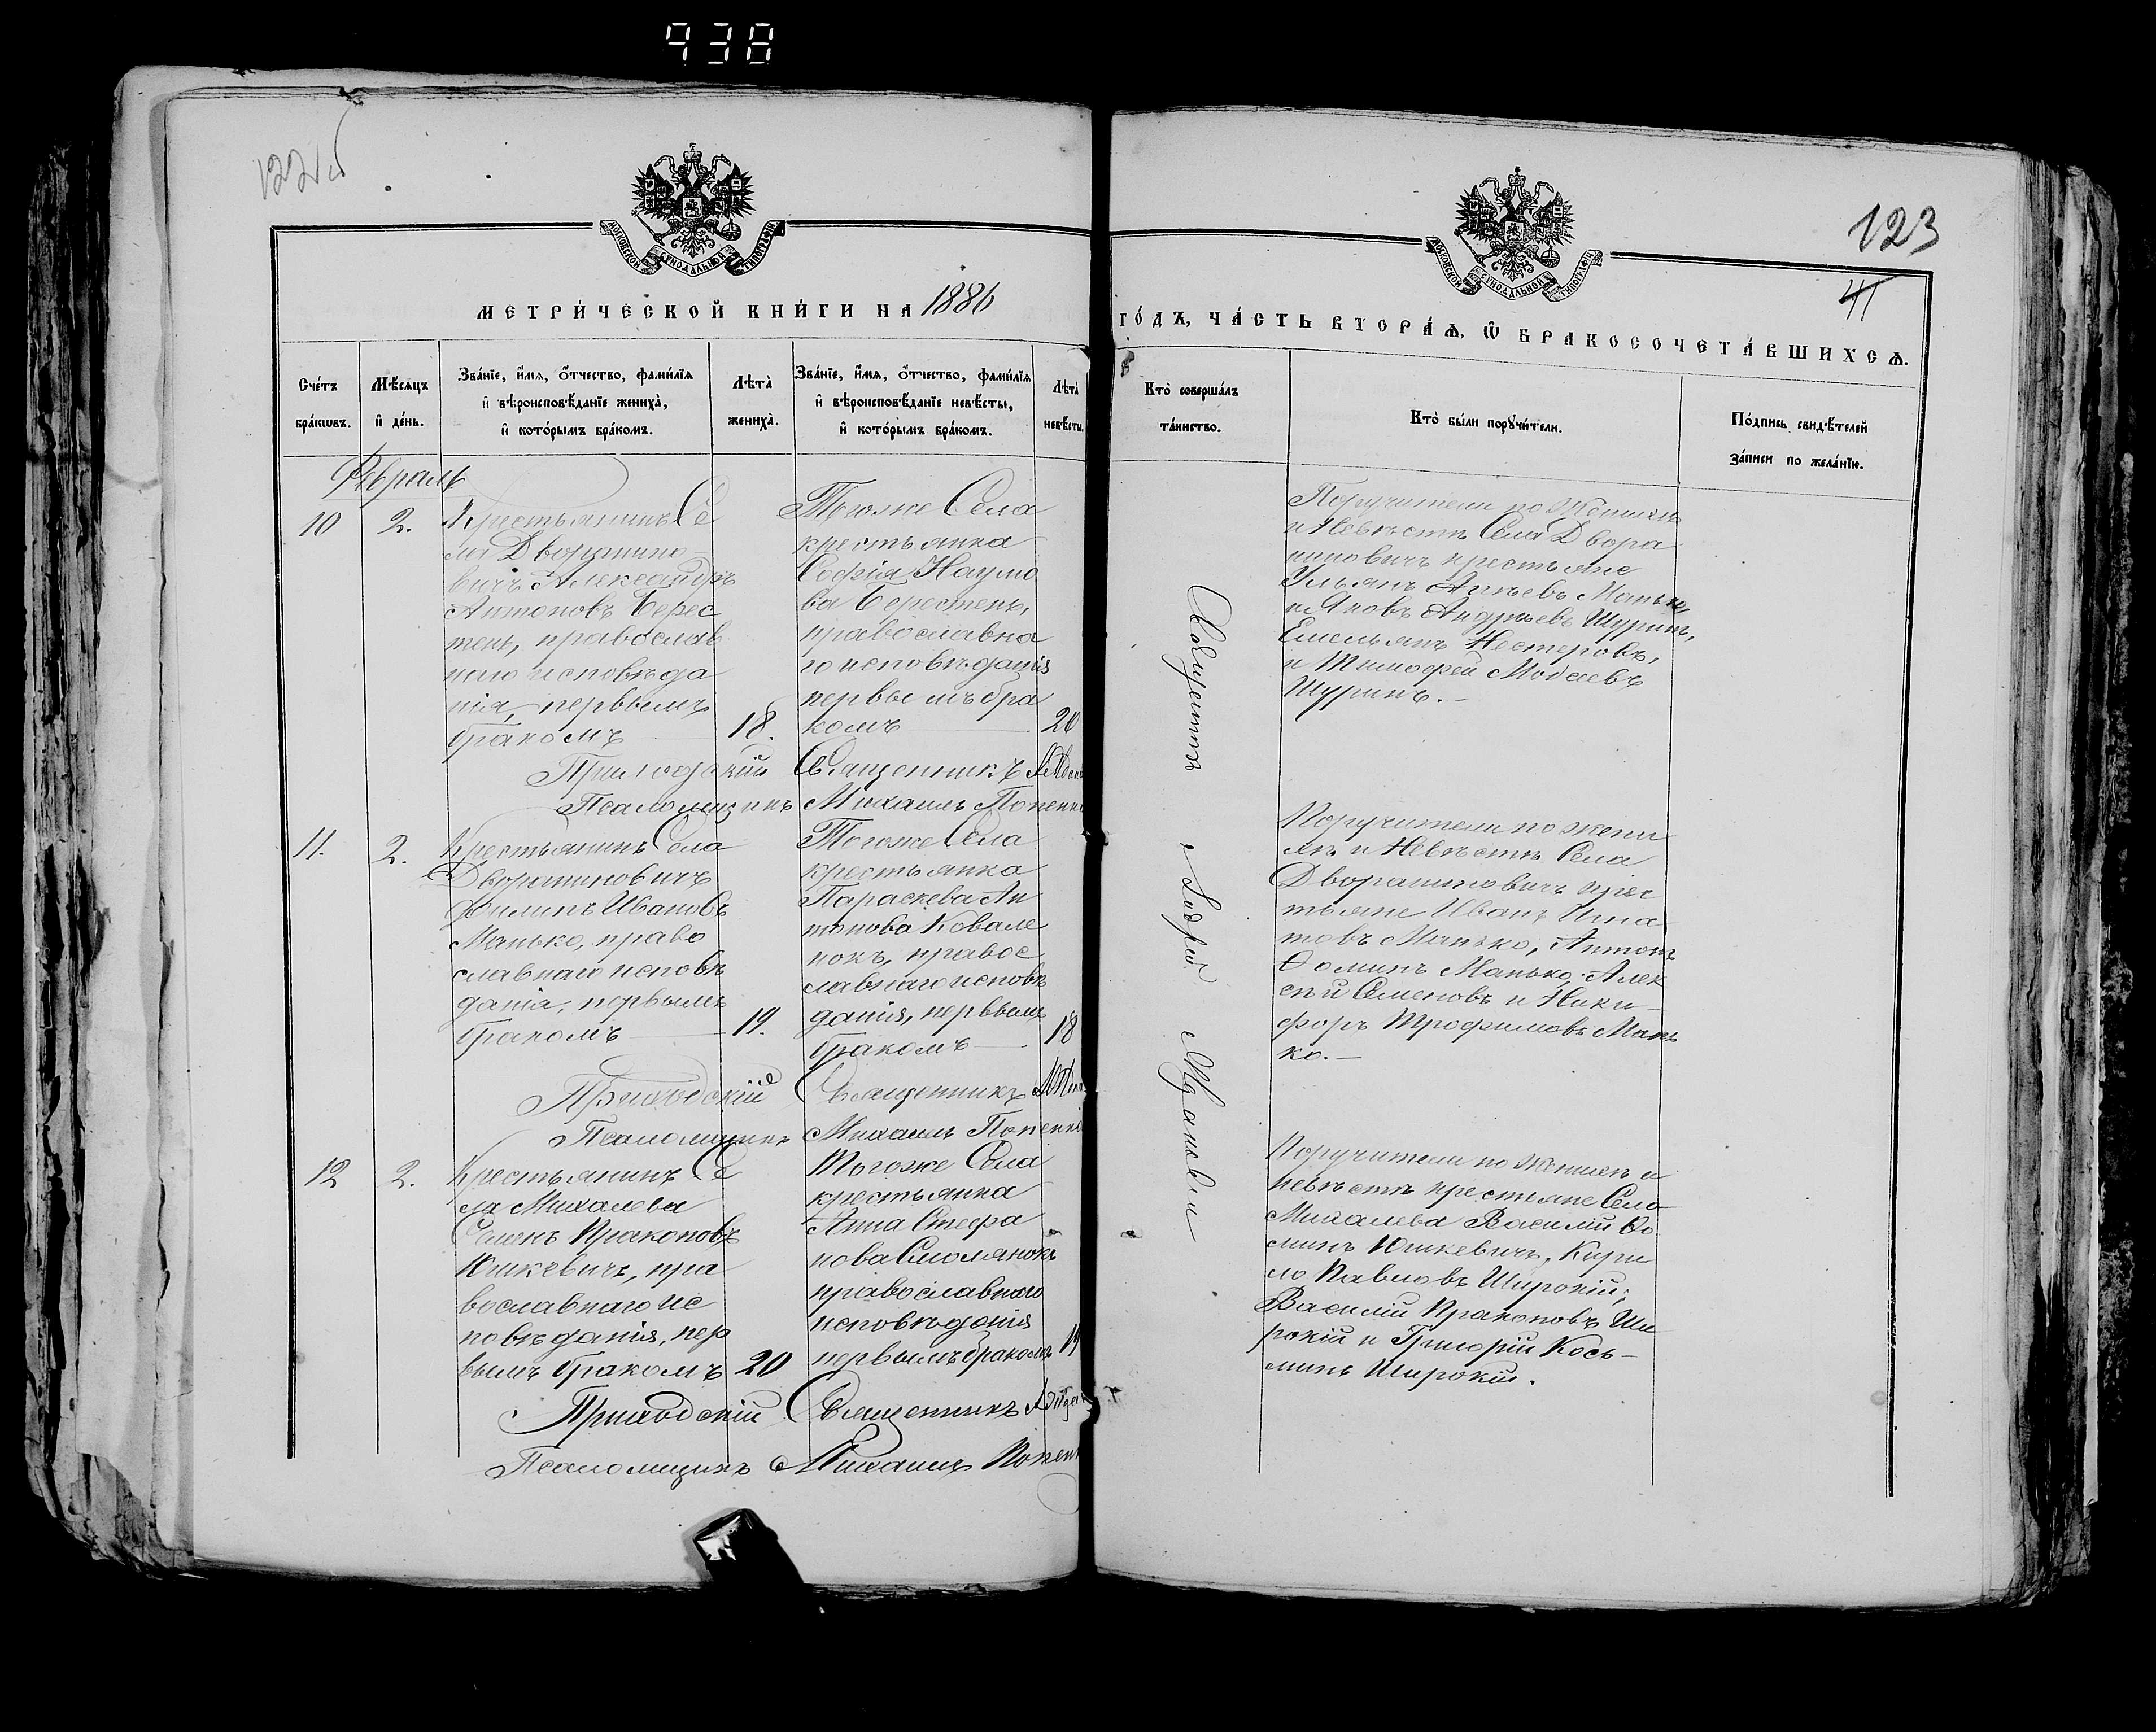 938
122об
123
41
МОСКОВСКОЙ СѴНОДАЛЬНОЙ ТИПОГРАФІИ
МОСКОВСКОЙ СѴНОДАЛЬНОЙ ТИПОГРАФІИ
МЕТРИ́ЧЕСКОЙ КНИ́ГИ НА 1886
ГО́ДЪ, ЧА́СТЬ ВТОРА́Ѧ, Ѿ БРАКОСОЧЕТА́ВШИХСѦ.
Сче́тъ
бра́кѡвъ.
Мѣ́сѧцъ
и҆ де́нь.
Зва́нїе, и҆́мѧ, ѻ҆́тчество, фами́лїѧ
и҆ вѣроисповѣ́данїе жениха̀,
и҆ кото́рымъ бра́комъ.
Лѣ́та̀
жениха̀.
Зва́нїе, и҆́мѧ, ѻ҆́тчество, фами́лїѧ
и҆ вѣроисповѣ́данїе невѣ́сты,
и҆ кото́рымъ бра́комъ.
Лѣ́та̀
невѣ́сты.
Кто̀ соверша́лъ
та́инство.
Кто̀ бы́ли порꙋчи́тели.
По́дпись свидѣ́телей
за́писи по жела́нїю.
Февраль
10
2.
Крестьянинъ Се
ла Дворянино
вичъ Александръ
Антоновъ Берес
тень, православ
наго исповѣда
нія, первымъ
бракомъ
18.
Тогоже Села
крестьянка
Софія Наумо
ва Берестень,
православна
го исповѣданія
первымъ бра
комъ
20
Приходскій Священникъ
Псаломщикъ Михаилъ Попенк
Поручители по женихѣ
и Невѣстѣ Села Дворя
ниновичъ крестьяне
Ульянъ Манько,
и Яковъ Андреевъ Шуринъ,
Емельянъ Нестеровъ,
и Тимофей Шуринъ.
11.
2.
Крестьянинъ Села
Дворяниновичъ
Филипъ Ивановъ
Манько, право
славнаго исповѣ
данія, первымъ
бракомъ
19.
Тогоже Села
крестьянка
Параскева Ан
тонова Ковале
нокъ, правос
лавнаго исповѣ
данія, первымъ
бракомъ
18
Приходскій Священникъ
Псаломщикъ Михаилъ Попенко
Поручители по жени
хѣ и Невѣстѣ Села
Дворяниновичъ крес
тьяне Иванъ Игна
товъ Манько, Антонъ
Ѳоминъ Манько, Алек
сѣй Семеновъ и Ники
форъ Трофимовъ Мань
ко.
12
2.
Крестьянинъ Се
ла Михалева
Семенъ Пракоповъ
Юшкевичъ, пра
вославнаго ис
повѣданія, пер
вымъ бракомъ
20
Тогоже Села
крестьянка
Анна Стефа
нова Смолянокъ
православнаго
исповѣданія
первымъ бракомъ
19
Приходскій Священникъ
Псаломщикъ Михаилъ Попенк
Поручители по женихѣ и
невѣстѣ крестьяне Села
Михалева Василій Ко
минъ Юшкевичъ, Кири
ло Павловъ Широкій;
Василій Пракоповъ Ши
рокій и Григорій Козь-
минъ Широкій.
Священникъ Андрей